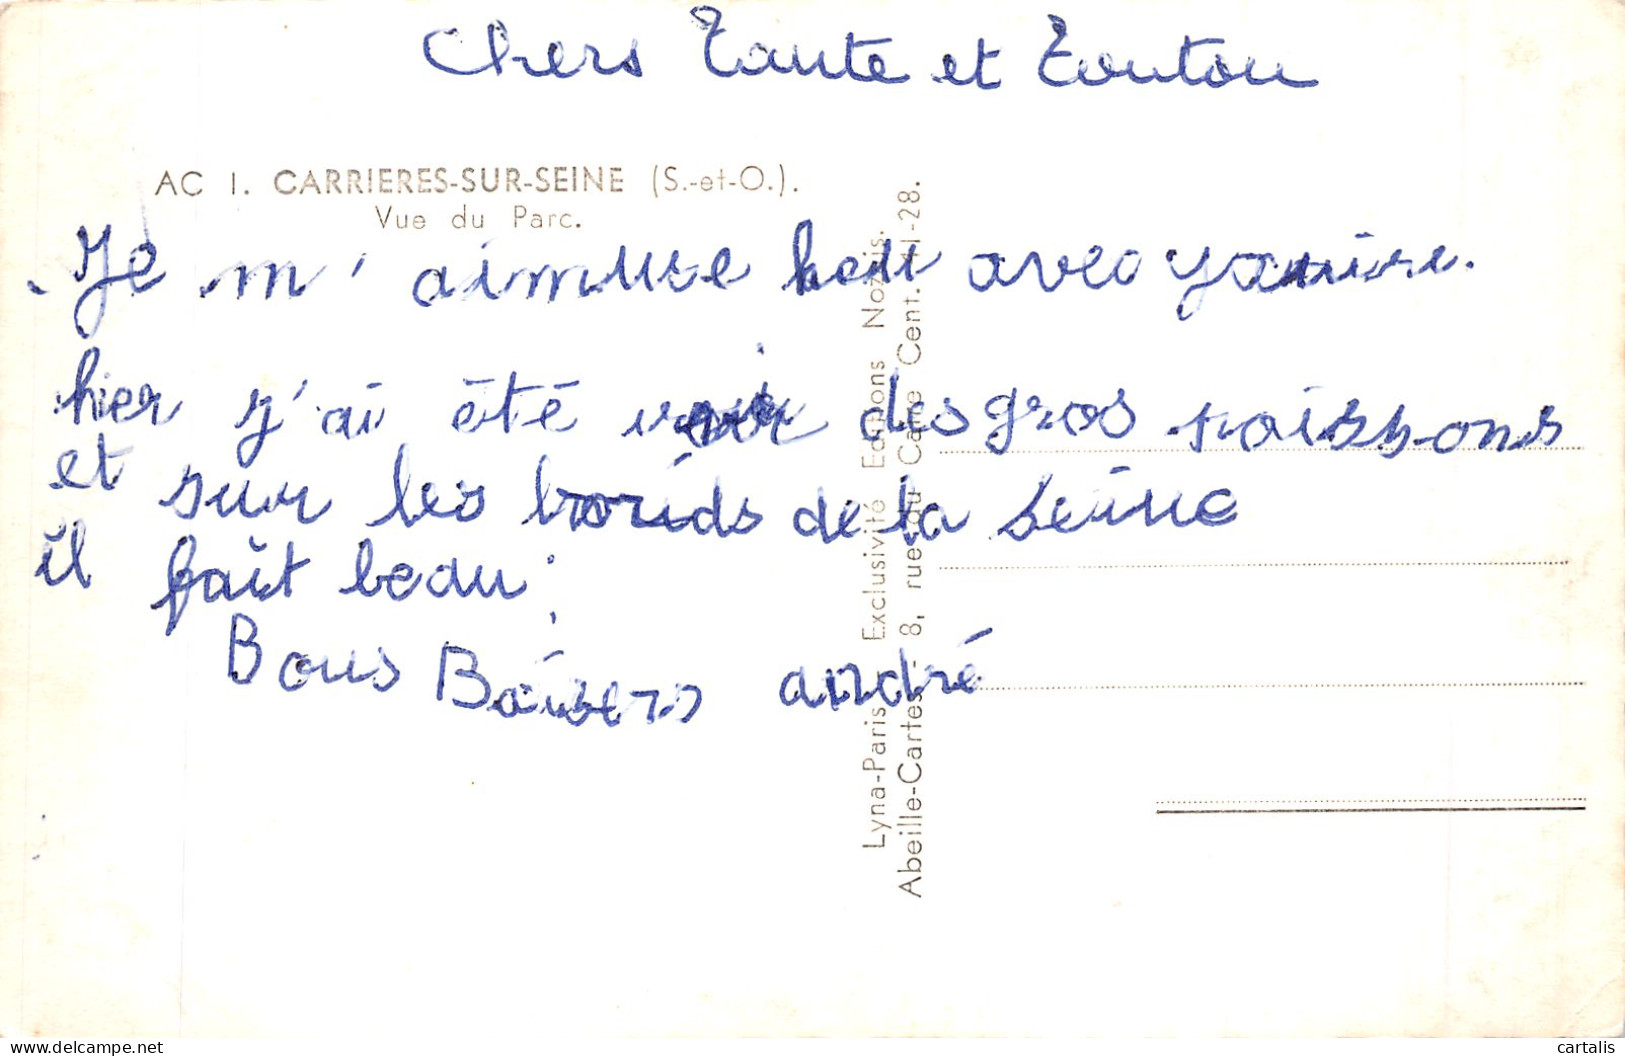 Chers Tante et Tonton
AC 1. CARRIERES-SUR-SEINE (S.-et-O.).
Vue du Parc.
Je m'aimuse beau avec
hier j'ai été voir des gros poissons
et sur les bords de la seine
il fait beau.
Bons Baisers andré
Lyna-Paris Exclusivité Editions Nozais.
Abeille-Cartes - 8, rue du Caire Cent. 41-28.
cartalis